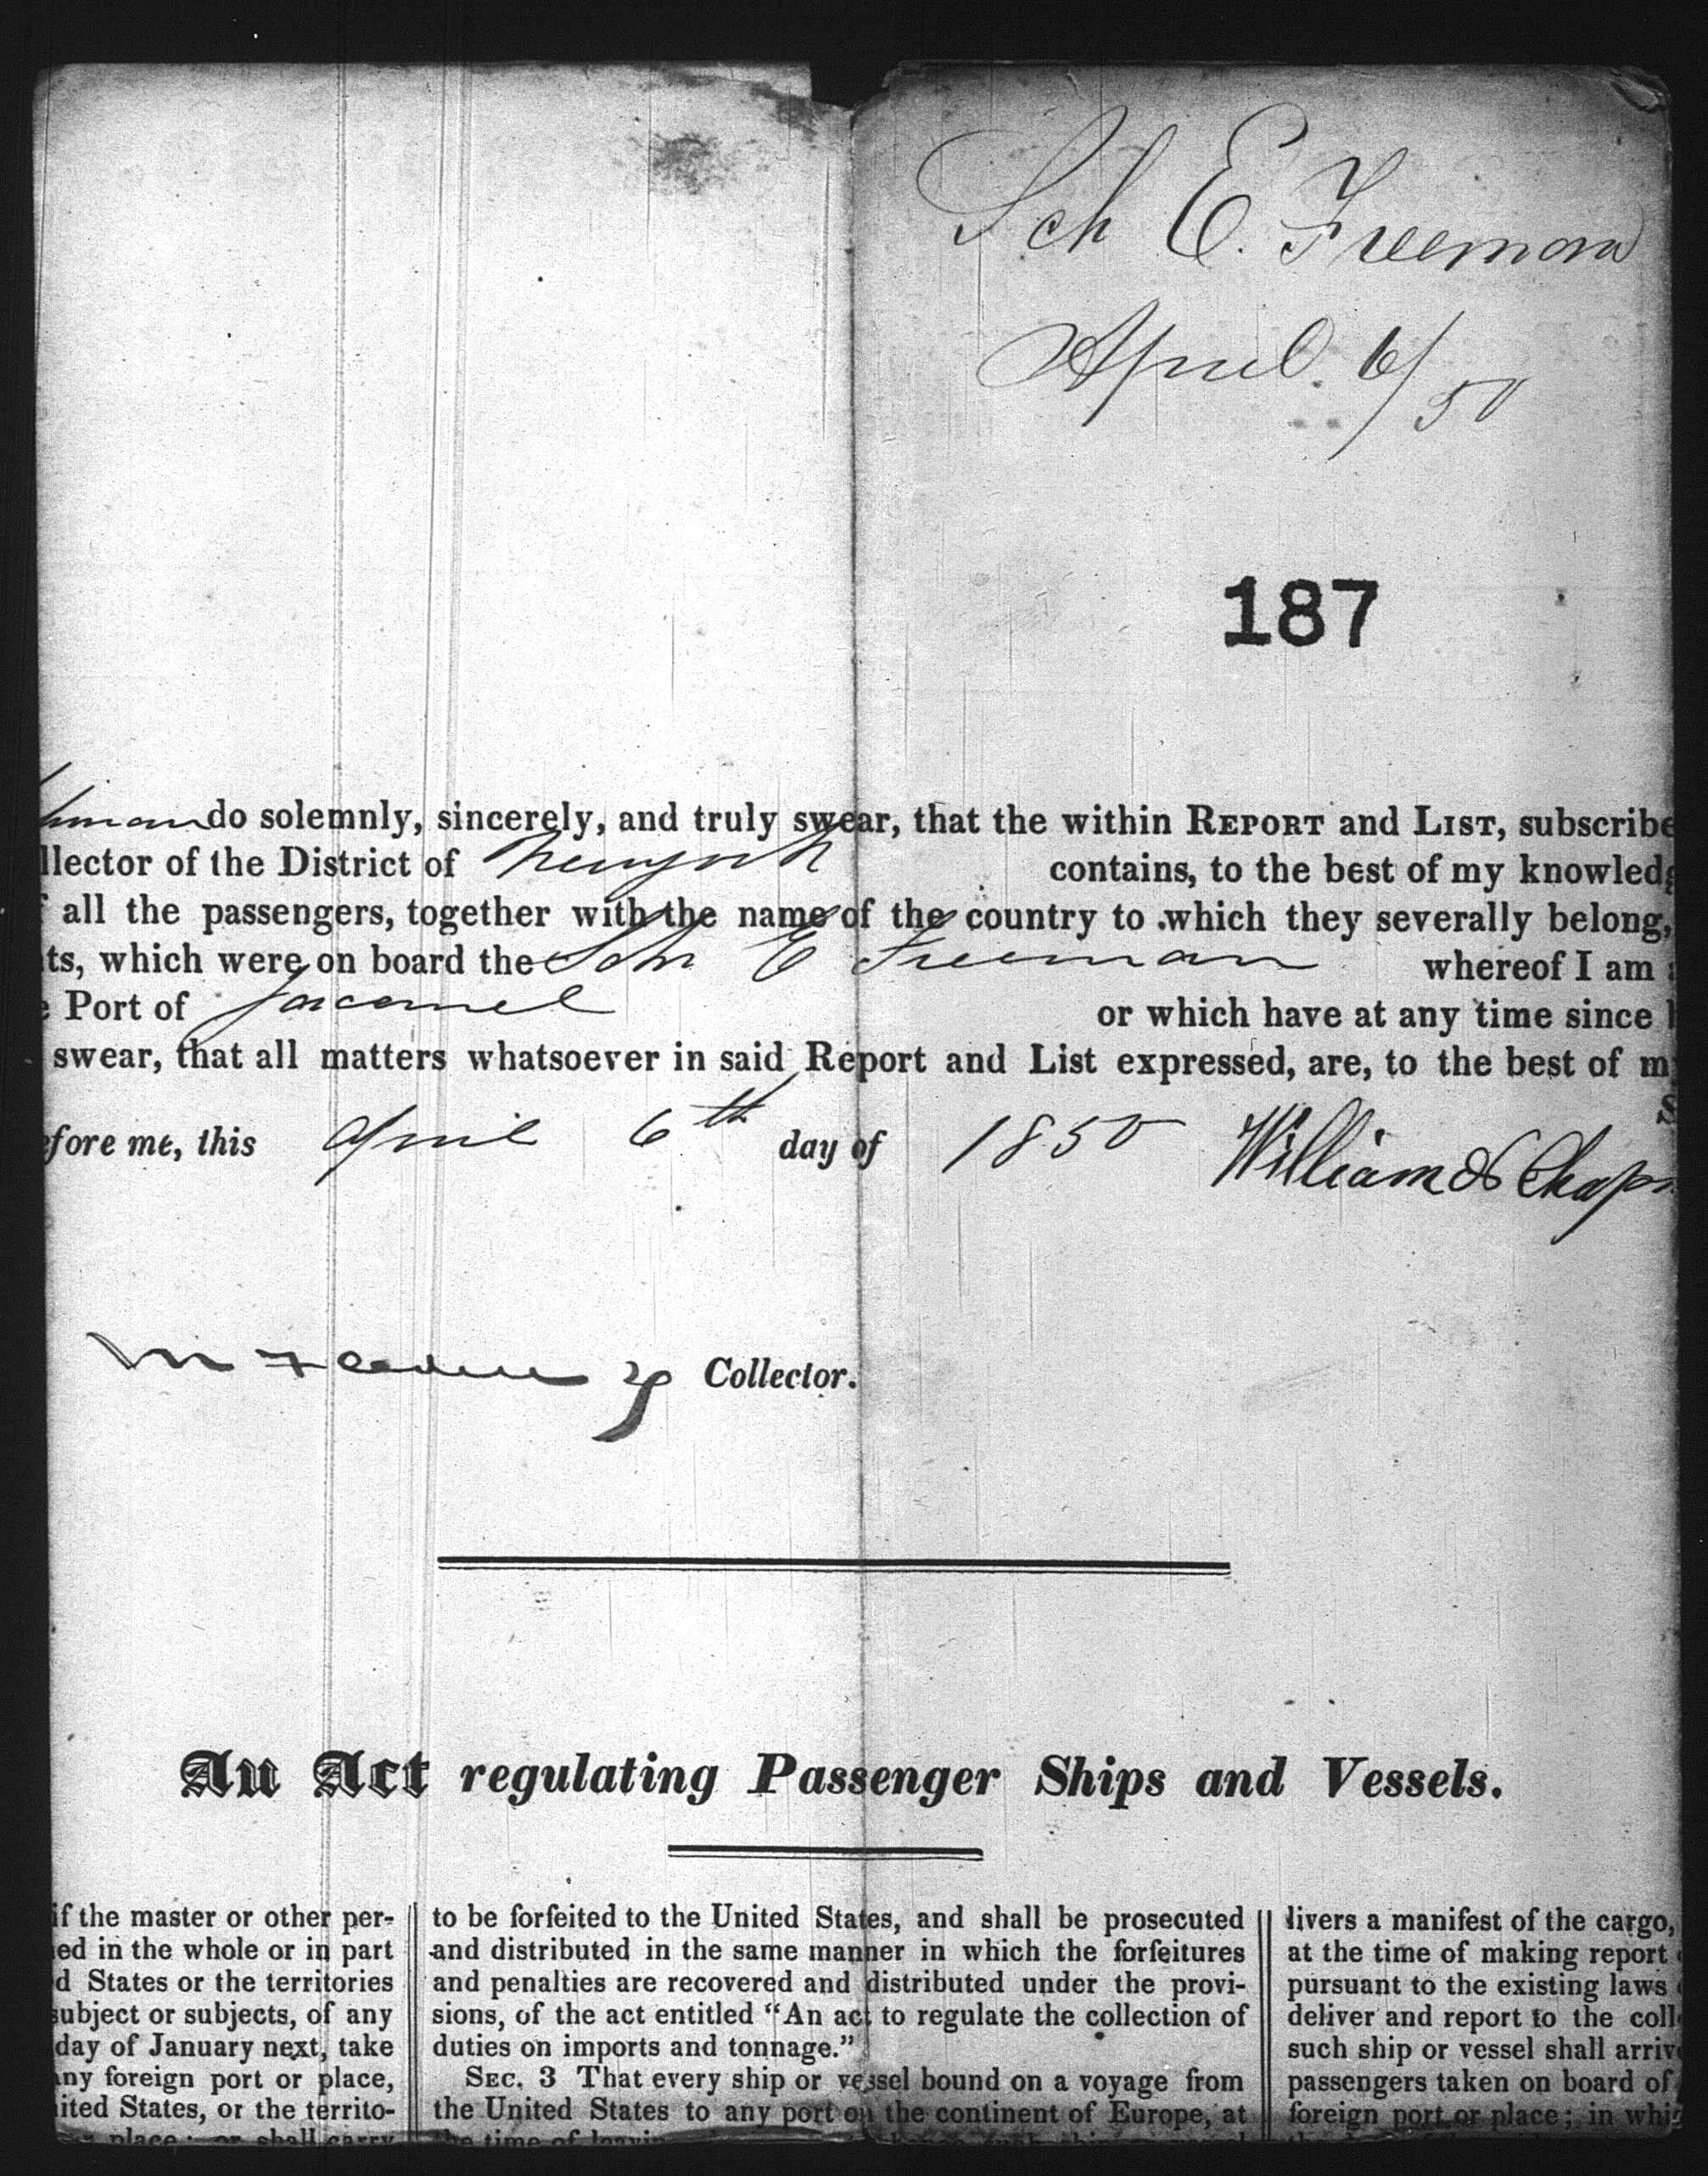 Sch E. Freeman
April 6/50
187
do solemnly, sincerely, and truly swear, that the within REPORT and LIST, subscribe
llector of the District of Newyork contains, to the best of my knowledg
all the passengers, together with the name of the country to which they severally belong,
ts, which were on board the Schr E Freeman whereof I am
Port of Jacamel or which have at any time since
swear, that all matters whatsoever in said Report and List expressed, are, to the best of m
S
efore me, this April 6th day of 1850 William S Chap
Collector.
An Act regulating Passenger Ships and Vessels.
if the master or other per-
ed in the whole or in part
d States or the territories
subject or subjects, of any
day of January next, take
any foreign port or place,
ited States, or the territo-
place; or shall carry
to be forfeited to the United States, and shall be prosecuted
and distributed in the same manner in which the forfeitures
and penalties are recovered and distributed under the provi-
sions, of the act entitled "An act to regulate the collection of
duties on imports and tonnage."
SEC. 3 That every ship or vessel bound on a voyage from
the United States to any port on the continent of Europe, at
the time of
livers a manifest of the cargo,
at the time of making report
pursuant to the existing laws
deliver and report to the coll
such ship or vessel shall arrive
passengers taken on board of
foreign port or place; in whi